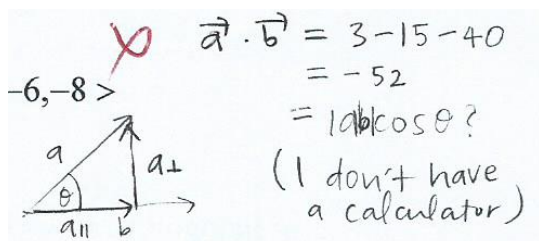 a⃗ · b⃗ = 3-15-40
= -52
-6,-8 >
= |ab|cosθ?
(I don't have
a calculator)
a
a⊥
θ
a|| b